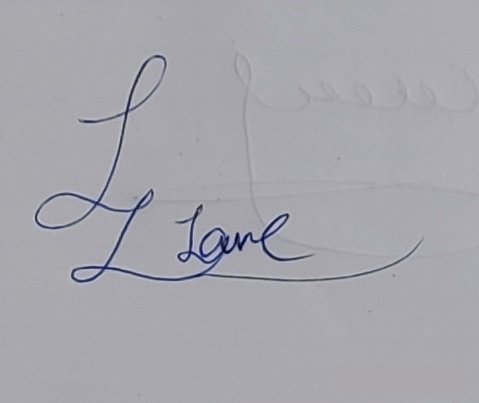 L L Lane